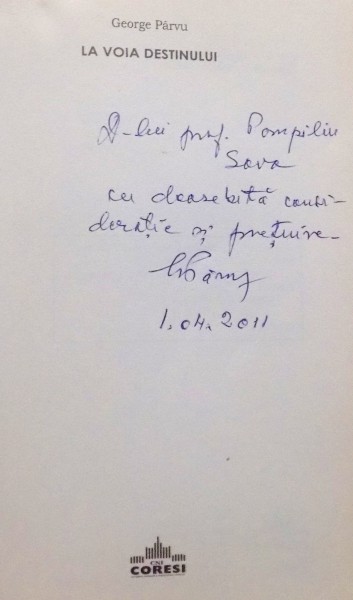 George Pârvu
LA VOIA DESTINULUI
D-lui prof. Pompiliu
Sava
cu deosebită consi-
derație și prețuire.
GPârvu
1.04.2011
CNI
CORESI